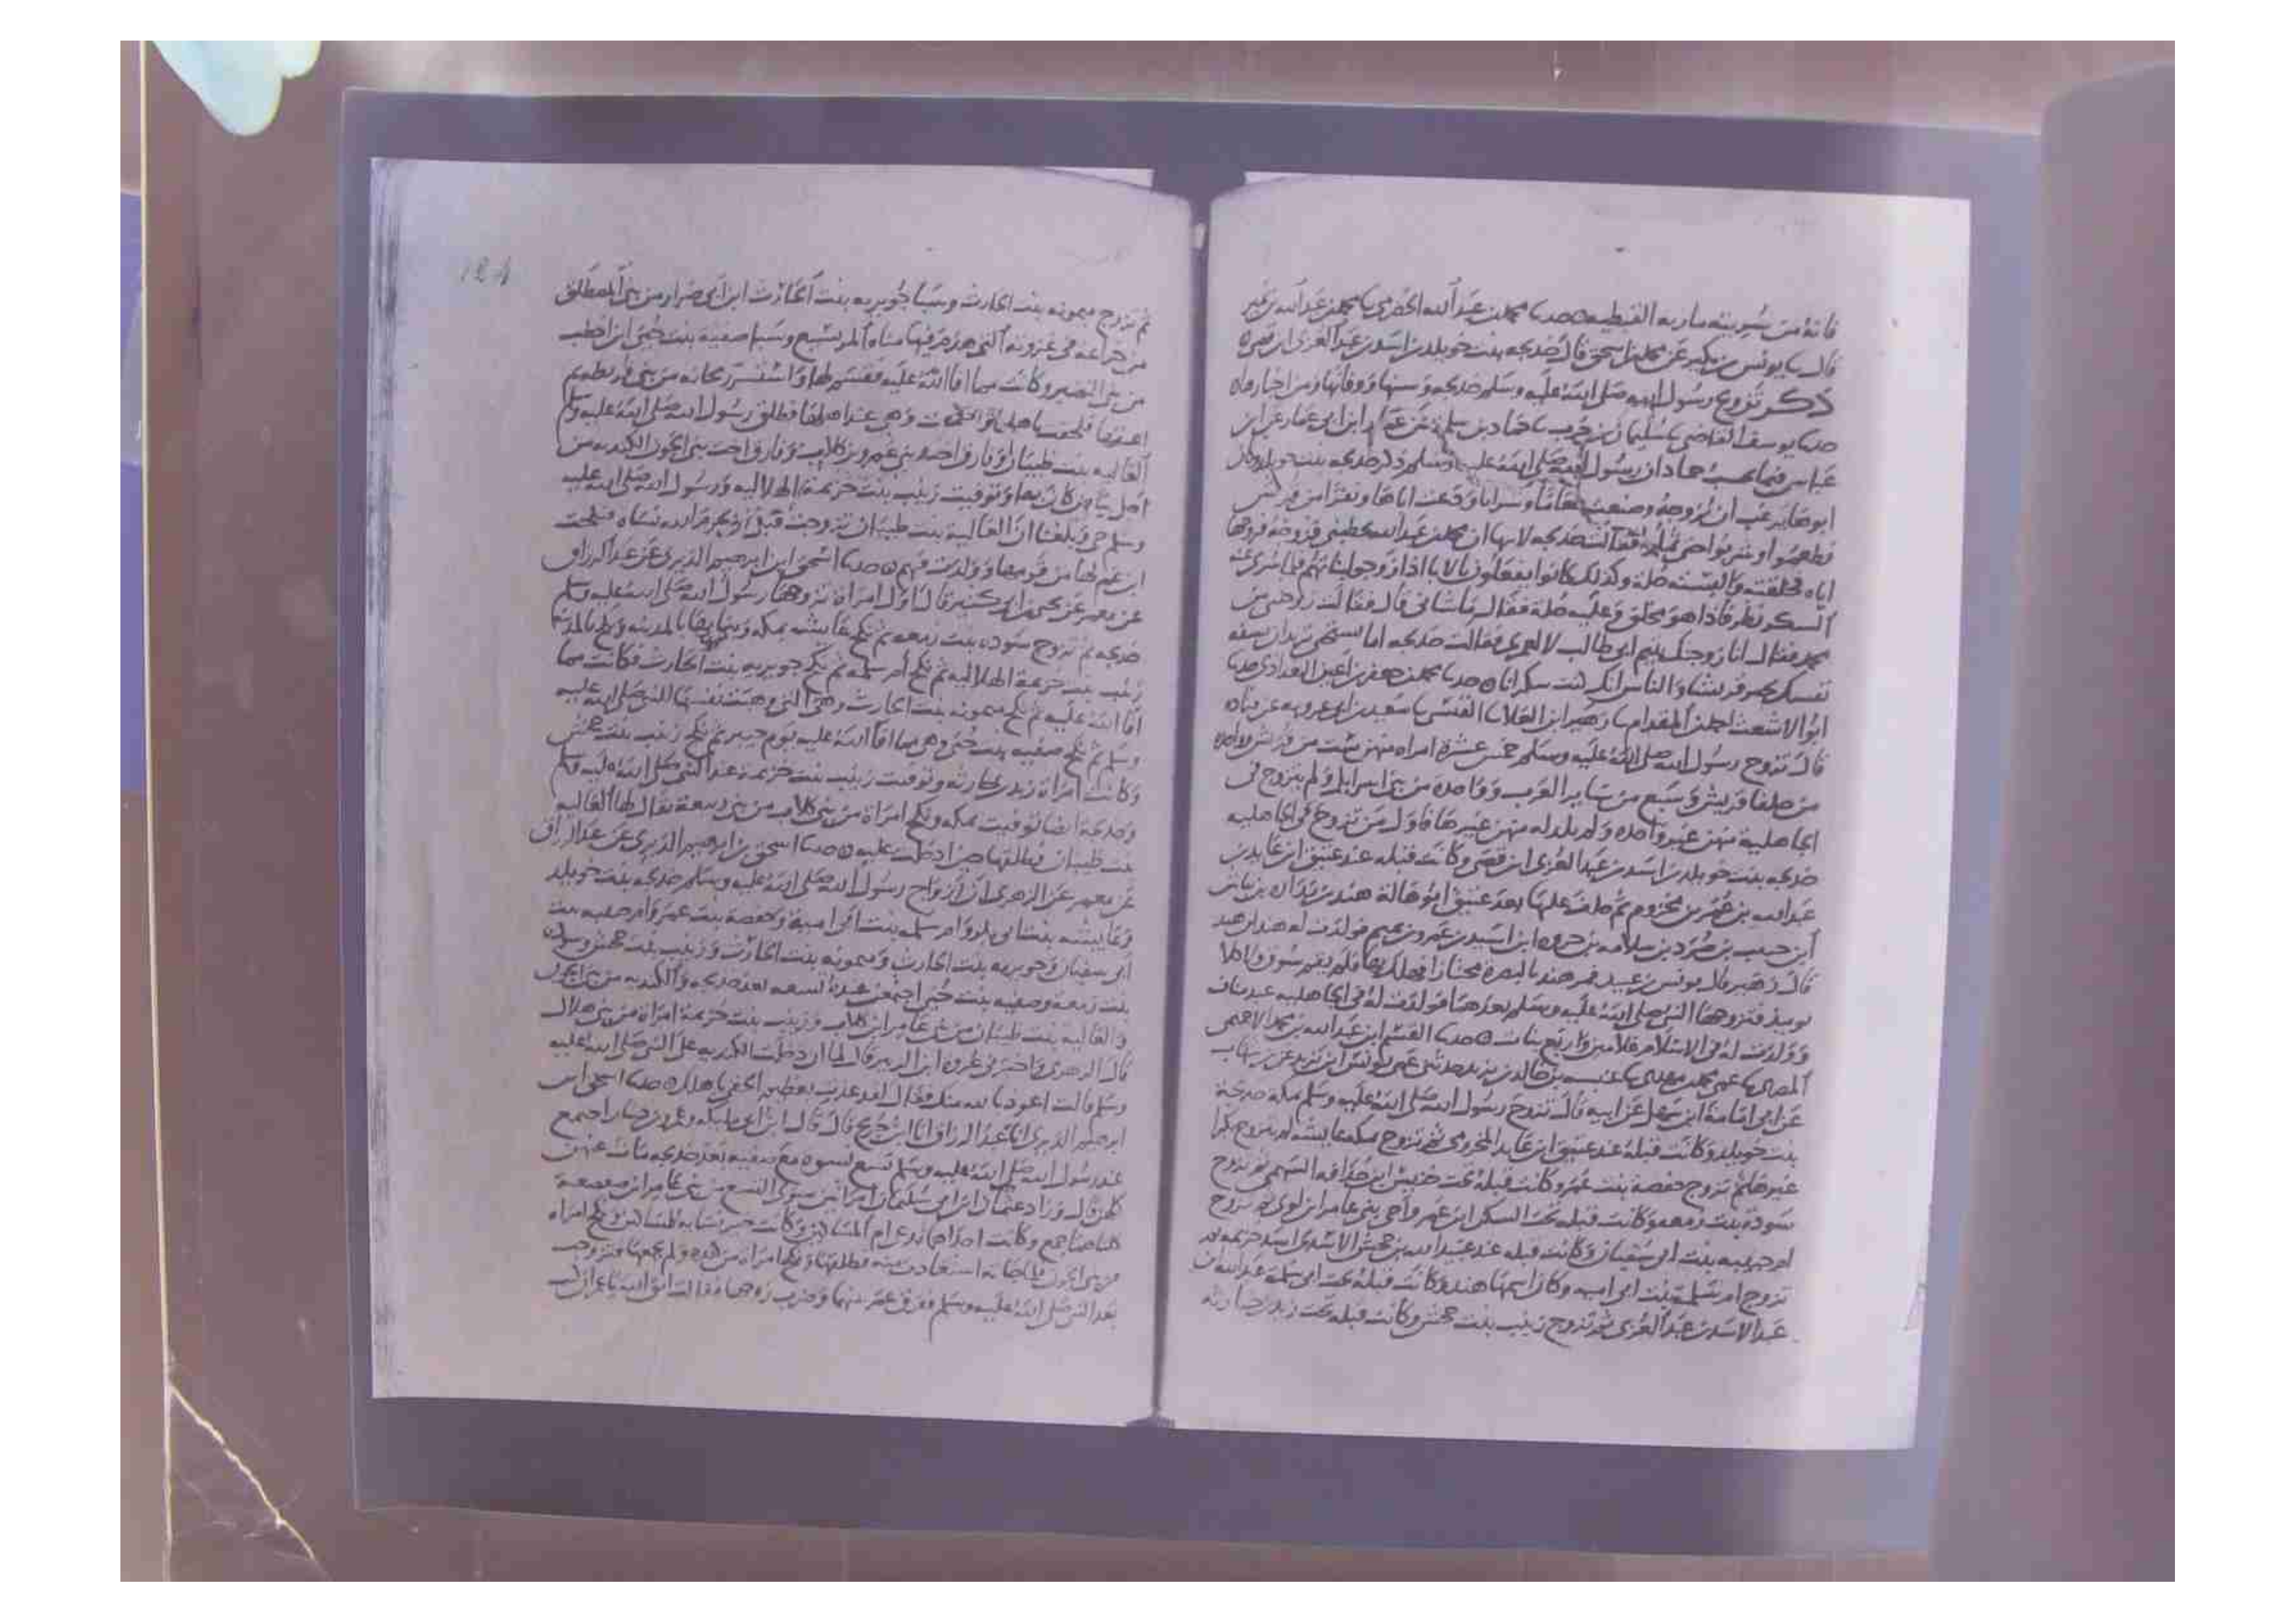 فانه من سريته ماريه القبطيه حدثنا محمد بن عبد الله الحضرمي ثنا محمد بن عبد الله بن نمير
قال ثنا يونس بن بكير عن محمد بن اسحق قال خديجه بنت خويلد بن اسد بن عبد العزى ابن قصي
ذكر تزوج رسول الله صلى الله عليه وسلم خديجه وسنها ووفاتها ومن اخبارها
حدثنا يوسف القاضي ثنا سليمان بن حرب ثنا حماد بن سلمه عن عمار ابن ابي عمار عن ابن
عباس فيما يحسب حماد ان رسول الله صلى الله عليه وسلم ذكر خديجه بنت خويلد وكان
ابوها يرغب ان يزوجه وصنعت طعاما وشرابا ودعت اباها ونفرا من قريش
فطعموا وشربوا حتى ثملوا فقالت خديجه لابيها ان محمد بن عبد الله يخطبني فزوجه فزوجها
اياه فخلقته والبسته حلة وكذلك كانوا يفعلون بالاباء اذا زوجوا بناتهم فلما سري عنه
السكر نظر فاذا هو مخلق وعليه حلة فقال ما شاني قال فقالت زوجتني من
محمد فقال انا ازوجك يتيم ابي طالب لا لعمري فقالت خديجه اما تستحي تريد ان تسفه
نفسك عند قريش والناس انك كنت سكرانا حدثنا محمد بن جعفر بن اعين البغدادي حدثنا
ابو الاشعث احمد بن المقدام ثنا زهير ابن العلاء القيسي ثنا سعيد بن ابي عروبه عن قتاده
قال تزوج رسول الله صلى الله عليه وسلم خمس عشرة امراه منهن ست من قريش وواحده
من حلفا قريش وسبع من ساير العرب وواحده من بني اسرايل ولم يتزوج في
الجاهلية منهن غير واحده ولم يلد له منهن غيرها فاول من تزوج في الجاهليه
خديجه بنت خويلد بن اسد بن عبد العزى ابن قصي وكانت قبله عند عتيق ابن عايذ بن
عبد الله بن عمر بن مخزوم ثم خلف عليها بعد عتيق ابو هالة هند بن زراره بن نباش
ابن حبيب بن صرد بن سلامه بن جروه ابن اسيد بن عمرو بن تميم فولدت له هند ابن هند
قال زهير قال يونس بن عبيد فمر هند بالبصره مجتازا فهلك بها فلم يقم سوق ولا كلا
يوميذ فتزوجها النبي صلى الله عليه وسلم بعدهما فولدت له في الجاهليه عبد مناف
وولدت له في الاسلام غلامين واربع بنات حدثنا القسم ابن عبد الله بن مهدي الاخميمي
المصري ثنا عمي محمد بن مهدي ثنا عنبسه بن خالد بن يزيد حدثني عمي يونس ابن يزيد عن ابن شهاب
عن ابي امامة ابن سهل عن ابيه قال تزوج رسول الله صلى الله عليه وسلم بمكة خديجة
بنت خويلد وكانت قبله عند عتيق ابن عايد المخزومي ثم تزوج بمكه عايشه لم يتزوج بكرا
غيرها ثم تزوج حفصة بنت عمر وكانت قبله تحت خنيس ابن حذافه السهمي ثم تزوج
سودة بنت زمعه وكانت قبله تحت السكران ابن عمرو اخي بني عامر ابن لوي ثم تزوج
ام حبيبه بنت ابي سفيان وكانت قبله عند عبيد الله بن جحش الاسدي اسد خزيمه ثم
تزوج ام سلمة بنت ابي اميه وكان اسمها هند وكانت قبله تحت ابي سلمة عبد الله بن
عبد الاسد بن عبد العزى ثم تزوج زينب بنت جحش وكانت قبله تحت زيد بن حارثه
ثم تزوج ميمونه بنت الحارث وسبا جويريه بنت الحارث ابن ابي ضرار من بني المصطلق
من خزاعه في غزوته التي هدم فيها مناة المريسيع وسبا صفية بنت حيي ابن اخطب
من بني النضير وكانت مما افا الله عليه فقسم لها واستسر ريحانه من بني قريظه ثم
اعتقها فلحقت باهلها واحتجبت وهي عند اهلها فطلق رسول الله صلى الله عليه وسلم
العاليه بنت ظبيان وفارق اخت بني عمرو بن كلاب وفارق اخت بني الجون الكنديه من
اجل بياض كان بها وتوفيت زينب بنت خزيمة الهلاليه ورسول الله صلى الله عليه
وسلم حي وبلغنا ان العالية بنت ظبيان تزوجت قبل ان يحرم الله نساه فنكحت
ابن عم لها من قومها وولدت فيهم حدثنا اسحق ابن ابراهيم الدبري عن عبد الرزاق
عن معمر عن يحيى بن ابي كثير قال اول امراة تزوجها رسول الله صلى الله عليه وسلم
خديجه ثم تزوج سوده بنت زمعه ثم نكح عايشه بمكه وبنى بها بالمدينه ونكح بالمدينه
زينب بنت خزيمة الهلاليه ثم نكح ام سلمه ثم نكح جويريه بنت الحارث فكانت مما
افا الله عليه ثم نكح ميمونه بنت الحارث وهي التي وهبت نفسها للنبي صلى الله عليه
وسلم ثم نكح صفيه بنت حيي وهي مما افا الله عليه يوم خيبر ثم نكح زينب بنت جحش
وكانت امراة زيد بن حارثه وتوفيت زينب بنت خزيمة عند النبي صلى الله عليه وسلم
وخديجة ايضا توفيت بمكه ونكح امراة من بني كلاب من بني ربيعة يقال لها العاليه
بنت ظبيان فطلقها حين ادخلت عليه حدثنا اسحق بن ابراهيم الدبري عن عبد الرزاق
عن معمر عن الزهري ان ازواج رسول الله صلى الله عليه وسلم خديجه بنت خويلد
وعايشه بنت ابي بكر وام سلمه بنت ابي امية وحفصة بنت عمر وام حبيبه بنت
ابي سفيان وجويريه بنت الحارث وميمونه بنت الحارث وزينب بنت جحش وسوده
بنت زمعه وصفيه بنت حيي اجتمعن عنده تسعه بعد خديجه والكنديه من بني الجون
والعاليه بنت ظبيان من بني عامر ابن كلاب وزينب بنت خزيمة امراة من بني هلال
قال الزهري واخبرني عروه ابن الزبير قال لما ان دخلت الكنديه على النبي صلى الله عليه
وسلم قالت اعوذ بالله منك فقال لقد عذت بعظيم الحقي باهلك حدثنا اسحق ابن
ابراهيم الدبري انا عبد الرزاق انا ابن جريج قال قال ابن ابي مليكه وعمرو بن دينار اجتمع
عند رسول الله صلى الله عليه وسلم تسع نسوه مع صفيه بعد خديجه مات عنهن
كلهن قال وزاد عثمان ابن ابي سليمان امراتين سوى التسع من بني عامر ابن صعصعة
كلتاهما جمع وكانت احداهما تدعى ام المساكين وكانت خير نسايه للمساكين ونكح امراه
من بني الجون فلما جاته استعاذت منه فطلقها ونكح امراة من كنده ولم يجمعها فتزوجت
بعد النبي صلى الله عليه وسلم ففرق عمر بينهما وضرب زوجها فقالت اتق الله يا عمر ان كنت